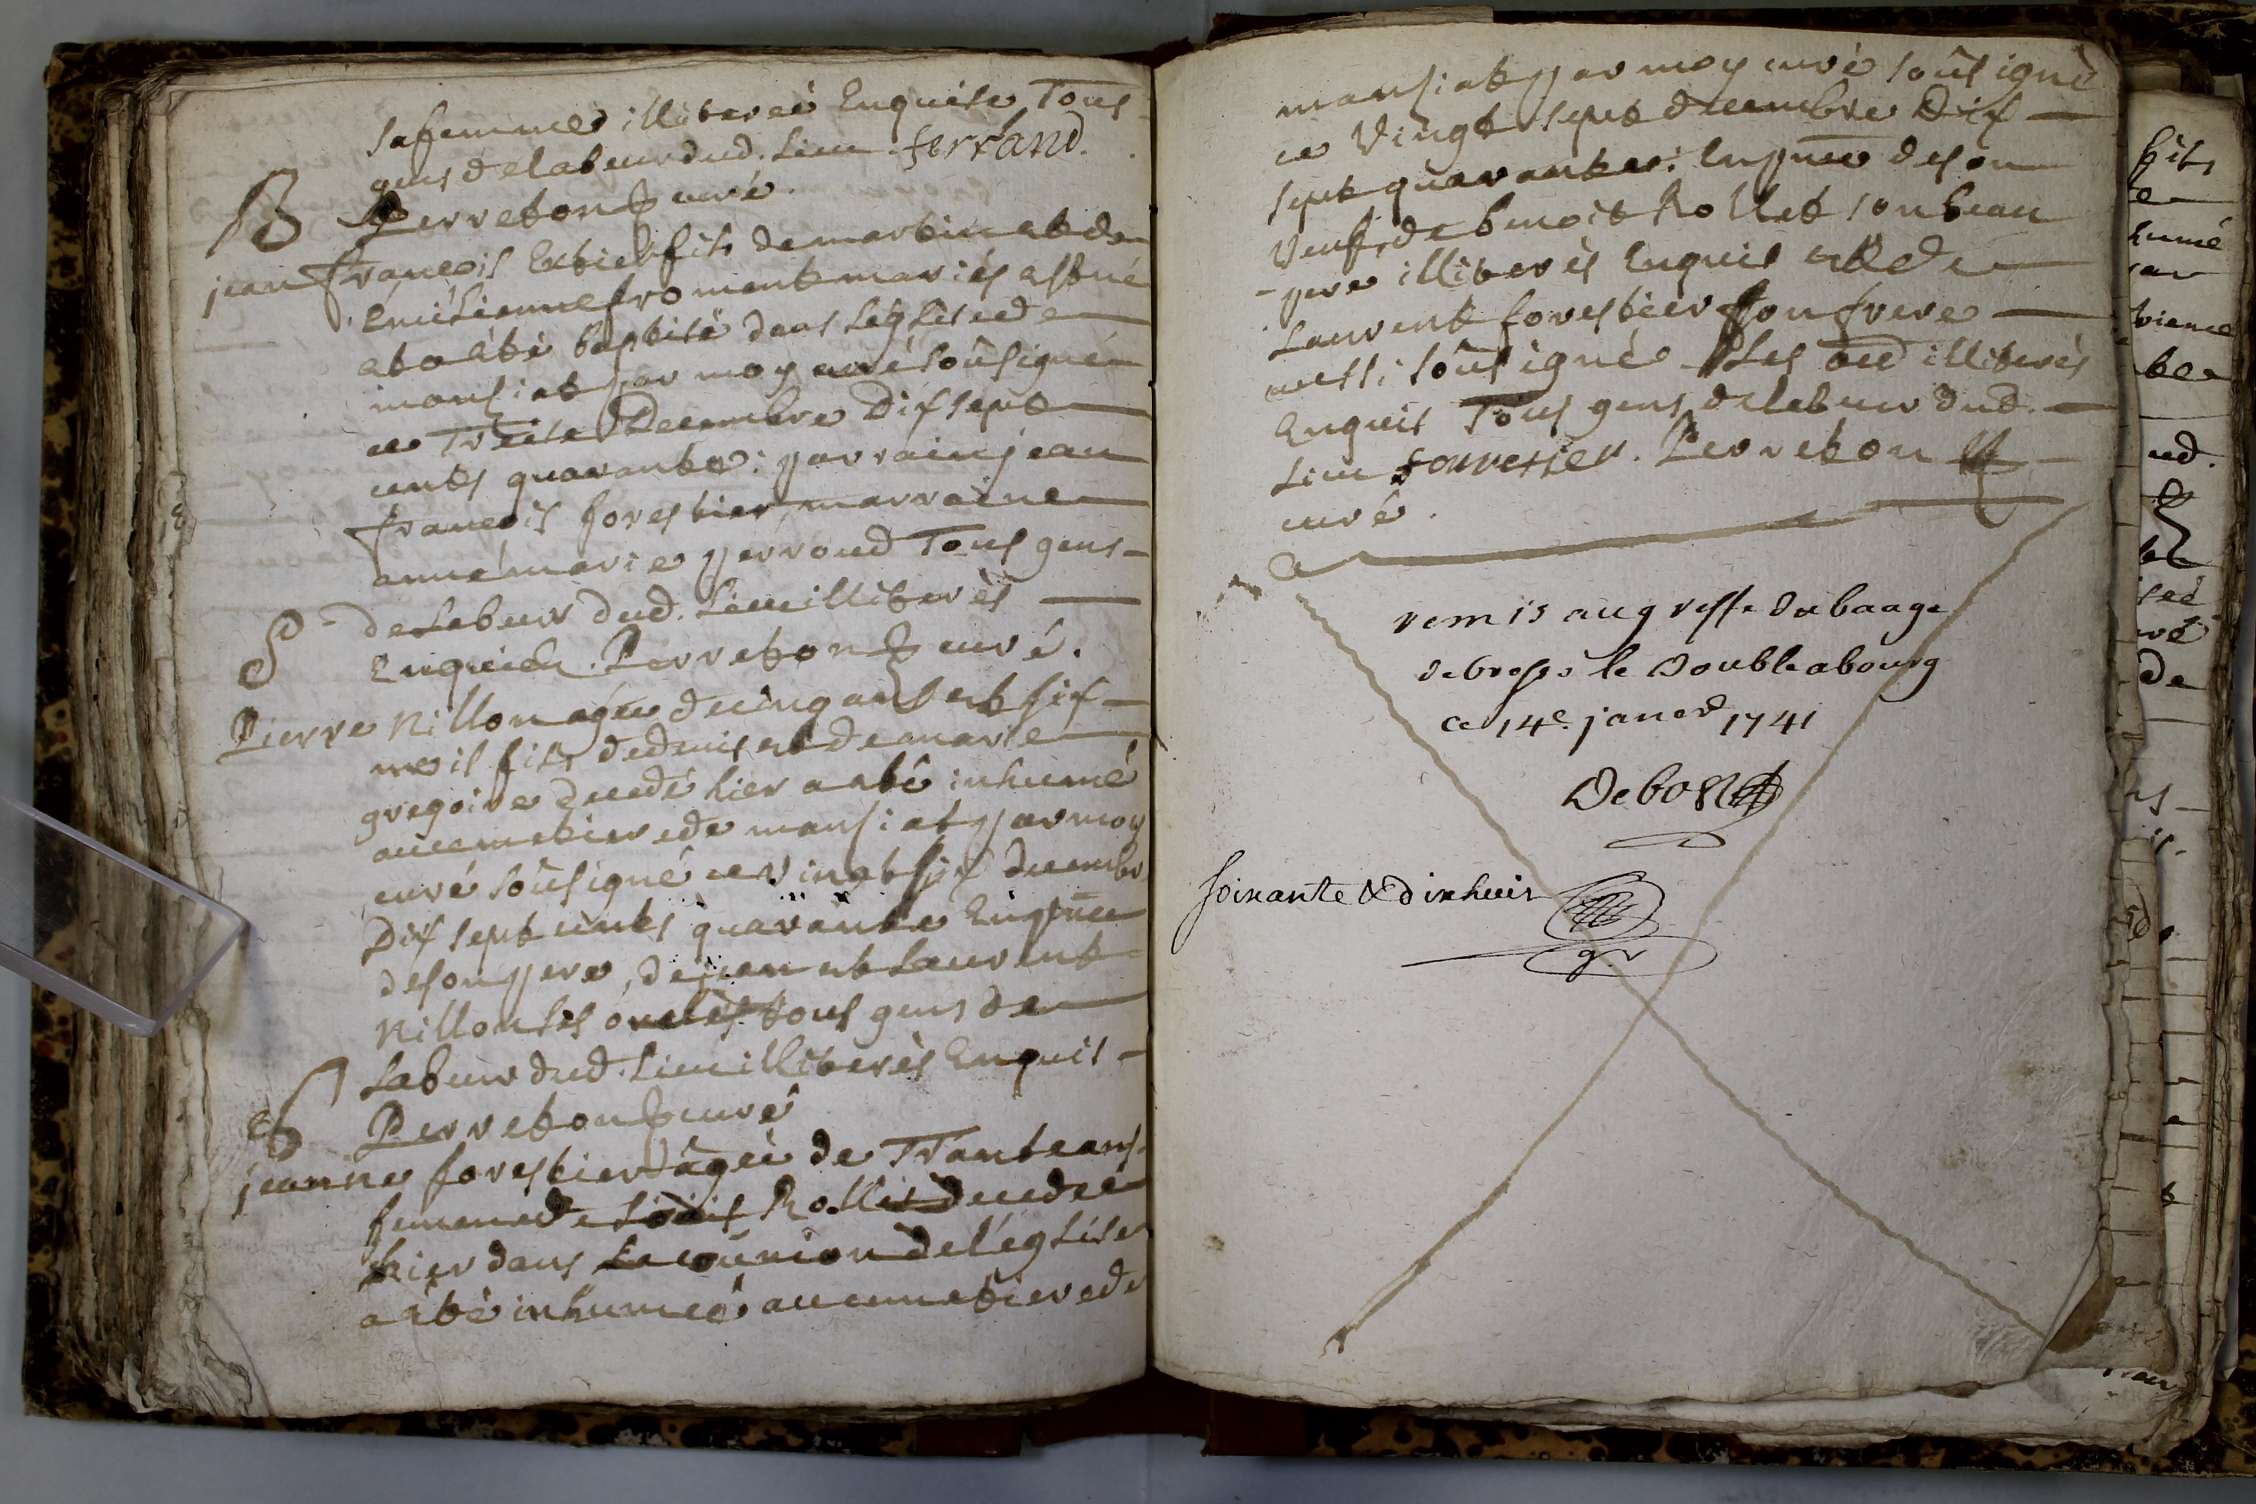 sa femme illiterée Enquise Tous
gens de labeur dud. Lieu ferrand.
Perreton curé.
B
jean François Extier fils de martin et de
froment mariés
a eté baptisé dans Léglise de
mansiat par moy curé soûsigné
ce Treise Decembre Dix sept
cents quarante: parrain jean
françois forestier, marraine
anne marie perroud Tous gens
de Labeur dud. Lieu illiterès
Enquis. Perreton curé.
S
Pierre Nillon agée de cinq ans et six
mois fils de denis et de marie
gregoire decedé hier a eté inhumé
au cemetiere de mansiat par moy
curé soûsigné ce vingt six decembre
Dix sept cents quarante En pñce
de son pere, de jean et Laurent
Nillon ses oncles tous gens de
Labeur dud. Lieu illiterès Enquis
Perreton curé
S
jeanne forestier âgée de Trante ans
femme de Loüis Rollet decedeé
hier dans La coûnion de l'église
a êté inhumeé au cemetiere de
mansiat par moy curé soûsigné
ce Vingt sept decembre Dix
sept quarante: En pñce de son
Veuf, de benoit Rollet son beau
pere illiterès Enquis et de
Laurent forestier son frere
aussi soûsigné Les aud illiterès
Enquis Tous gens de labeur dud.
Lieu fouretier. Perreton
curé.
remis au greffe du baage
de bresse le Double a bourg
ce 14e janer 1741
Debost
soixante & dix huit